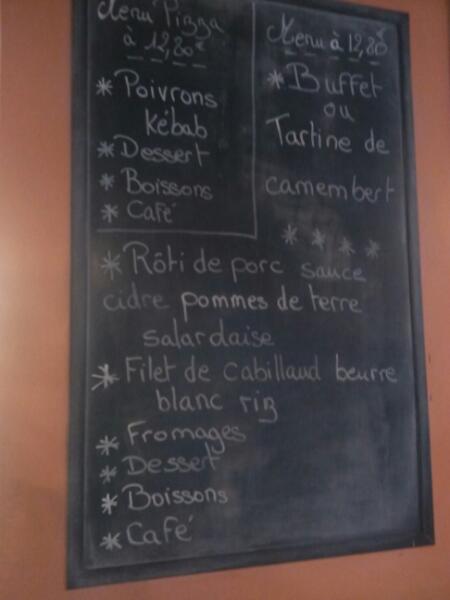 Menu Pizza
à 12,80€
* Poivrons
Kébab
* Dessert
* Boissons
* Café
Menu à 12,80€
* Buffet
ou
Tartine de
camembert
* * * *
* Rôti de porc sauce
cidre pommes de terre
salardaise
* Filet de cabillaud beurre
blanc riz
* Fromages
* Dessert
* Boissons
* Café